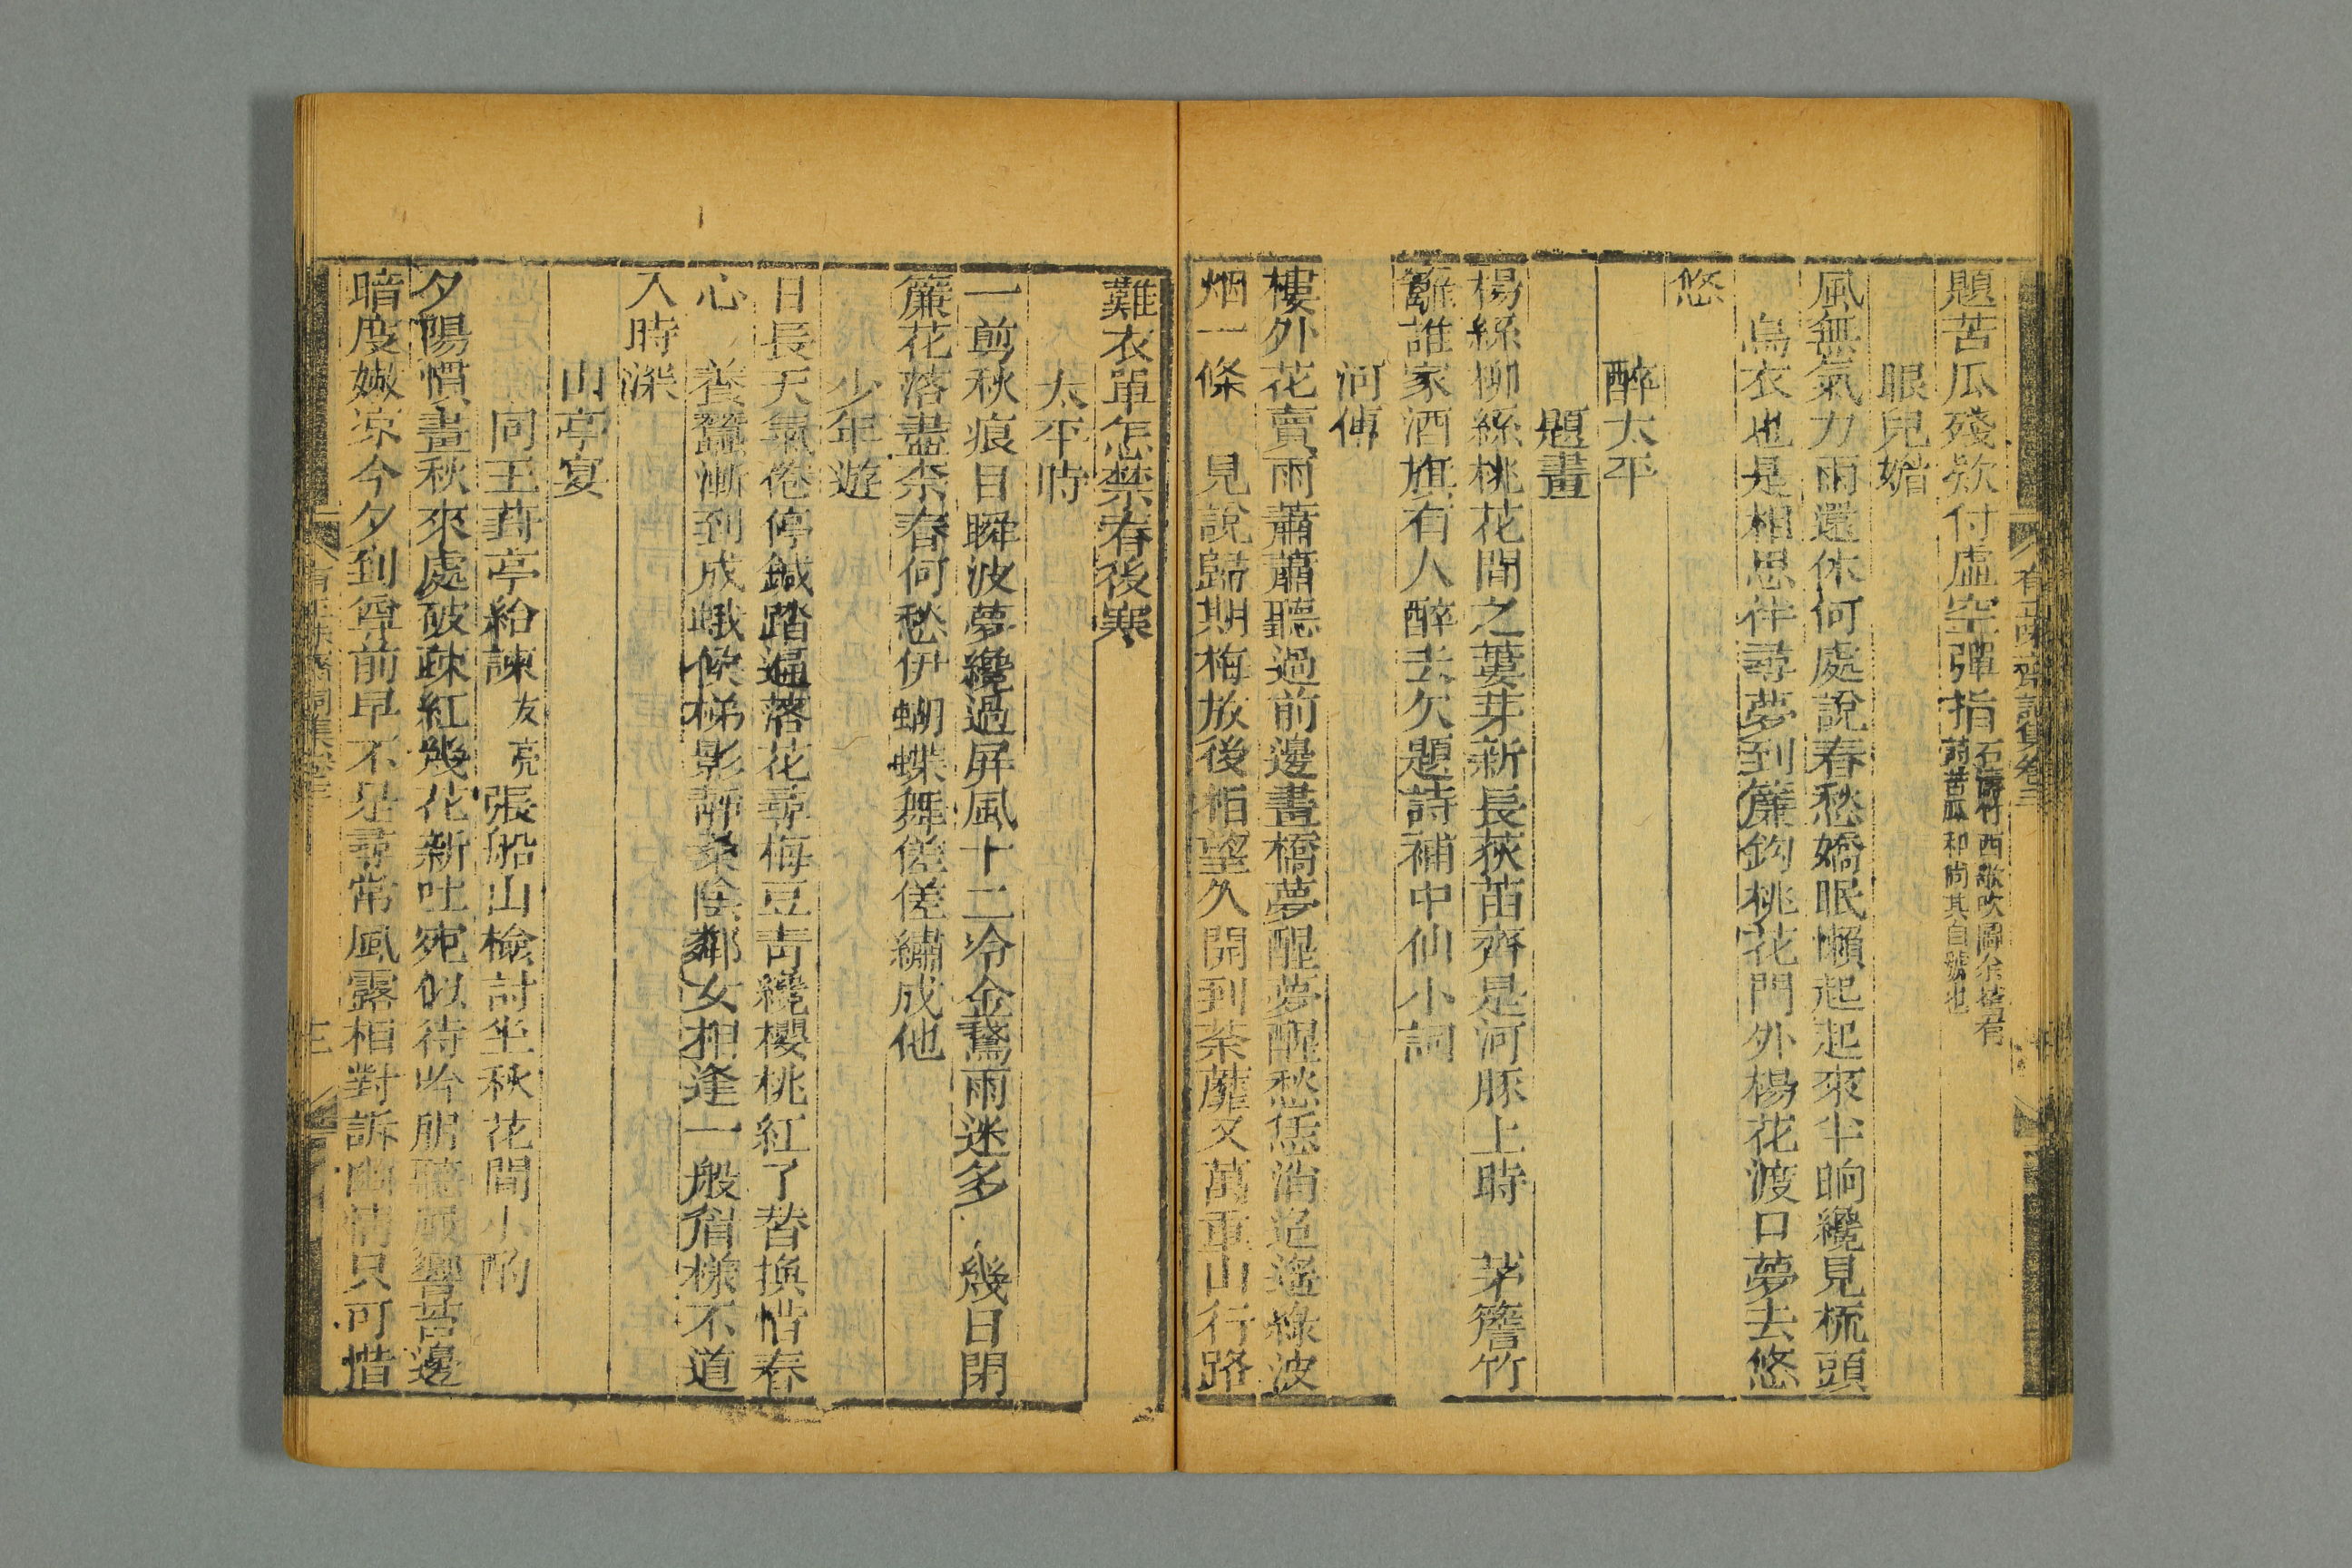 題苦瓜殘欵付虛空彈指石濤竹西歌吹圖余舊有
詩苦瓜和尚其自號也
眼兒媚
風無氣力雨還休何處說春愁嬌眠懶起起來半晌纔見梳頭
烏衣也是相思伴尋夢到簾鈎桃花門外楊花渡口夢去悠
悠
醉太平
題畫
楊絲柳絲桃花間之蔞芽新長荻苗齊是河豚上時　茅簷竹
籬誰家酒旗有人醉去欠題詩補中仙小詞
河傳
樓外花賣雨蕭蕭聽過前邊畫橋夢醒夢醒愁恁消迢遙綠波
烟一條　見說歸期梅放後相望久開到荼蘼又萬重山行路
難衣單怎禁春後寒
太平時
一剪秋痕目瞬波夢纔過屏風十二冷金鵞雨迷多　幾日閉
簾花落盡柰春何愁伊蝴蝶舞傞傞繡成他
少年遊
日長天氣倦停鍼踏遍落花尋梅豆青纔櫻桃紅了替換惜春
心　養蠶漸到成蛾候梯影靜桑陰鄰女相逢一般眉樣不道
入時深
山亭宴
同王葑亭給諫友亮張船山檢討坐秋花間小酌
夕陽慣畫秋來處破疎紅幾花新吐宛似待吟朋聽
響苔邊
暗度嫩涼今夕到尊前早不是尋常風露相對訴幽情只可惜
有正味齋詞集卷三
三